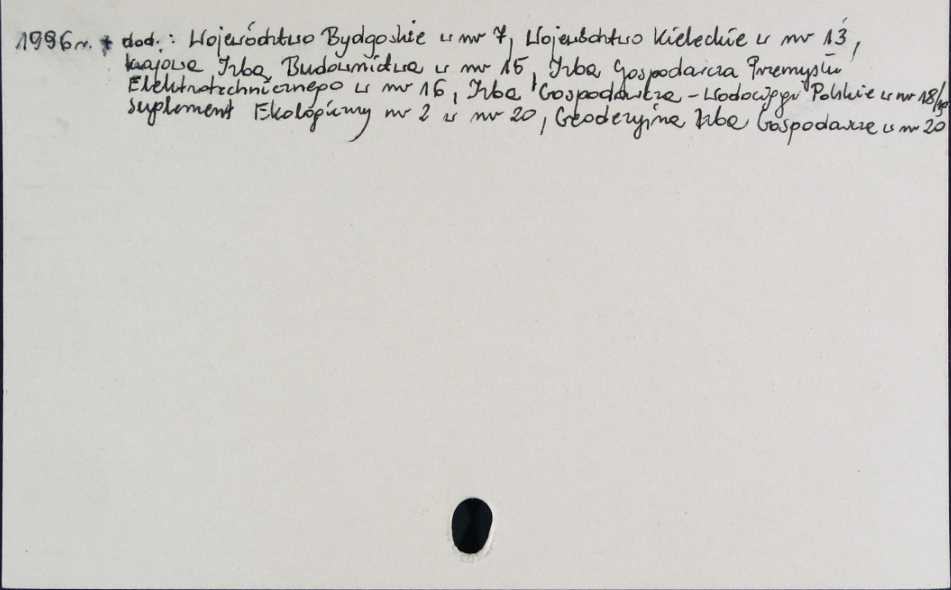 1996 r. + dod.: Województwo Bydgoskie w nr 7, Województwo Kieleckie w nr 13,
Krajowa Izba Budownictwa w nr 15, Izba Gospodarcza Przemysłu
Elektrotechnicznego w nr 16, Izba Gospodarcza - Wodociągi Polskie w nr 18/19
suplement Ekologiczny nr 2 w nr 20, Geodezyjna Izba Gospodarcza w nr 20